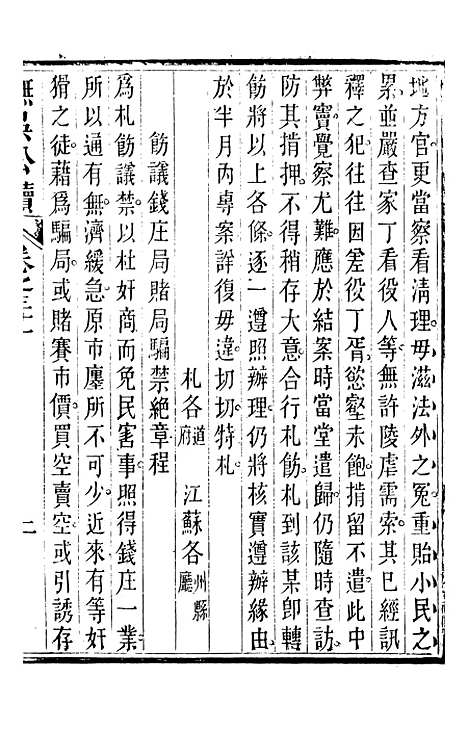 地方官更當察看淸理毋滋法外之冤重貽小民之
累並嚴查家丁看役人等無許陵虐需索其已經訊
釋之犯往往因差役丁胥慾壑未飽掯留不遣此中
弊竇覺察尤難應於結案時當堂遣歸仍隨時查訪
防其掯押不得稍存大意合行札飭札到該某卽轉
飭將以上各條逐一遵照辦理仍將核實遵辦緣由
於半月內專案詳復毋違切切特札
札各道府 江蘇各州縣廳
飭議錢庄局賭局騙禁絶章程
爲札飭議禁以杜奸商而免民害事照得錢庄一業
所以通有無濟緩急原市廛所不可少近來有等奸
猾之徒藉爲騙局或賭賽市價買空賣空或引誘存
撫吳公牘 卷之三十一 上